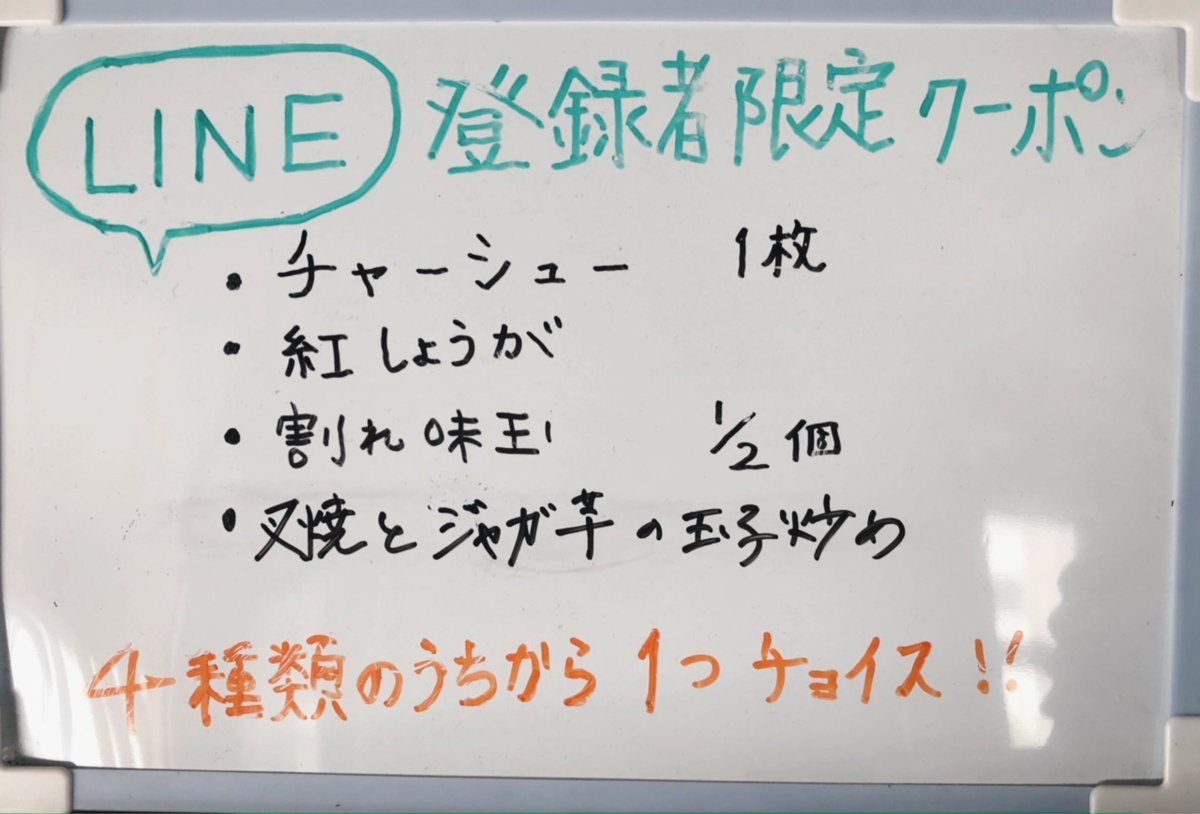 LINE 登録者限定クーポン
・チャーシュー 1枚
・紅しょうが
・割れ味玉 1/2個
・叉焼とジャガ芋の玉子炒め
4種類のうちから1つチョイス!!